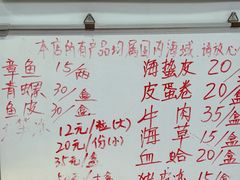 本店所有产品均属国内海域,请放心
章鱼 15/两
海蛰皮 20/
青螺 30/盒
皮蛋卷 20/
鱼皮 30/盒
牛肉 35/盒
冻 12元/粒(大)
海草 15/盒
20元/份(小)
血蛤 20/
35元/盒